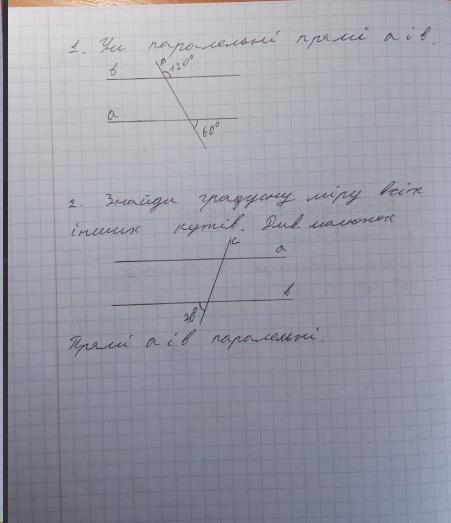 1. Чи паралельні прямі а і в.
в
120°
а
60°
2. Знайди градусну міру всіх
інших кутів. Див. малюнок
с
а
в
70°
Прямі а і в паралельні.